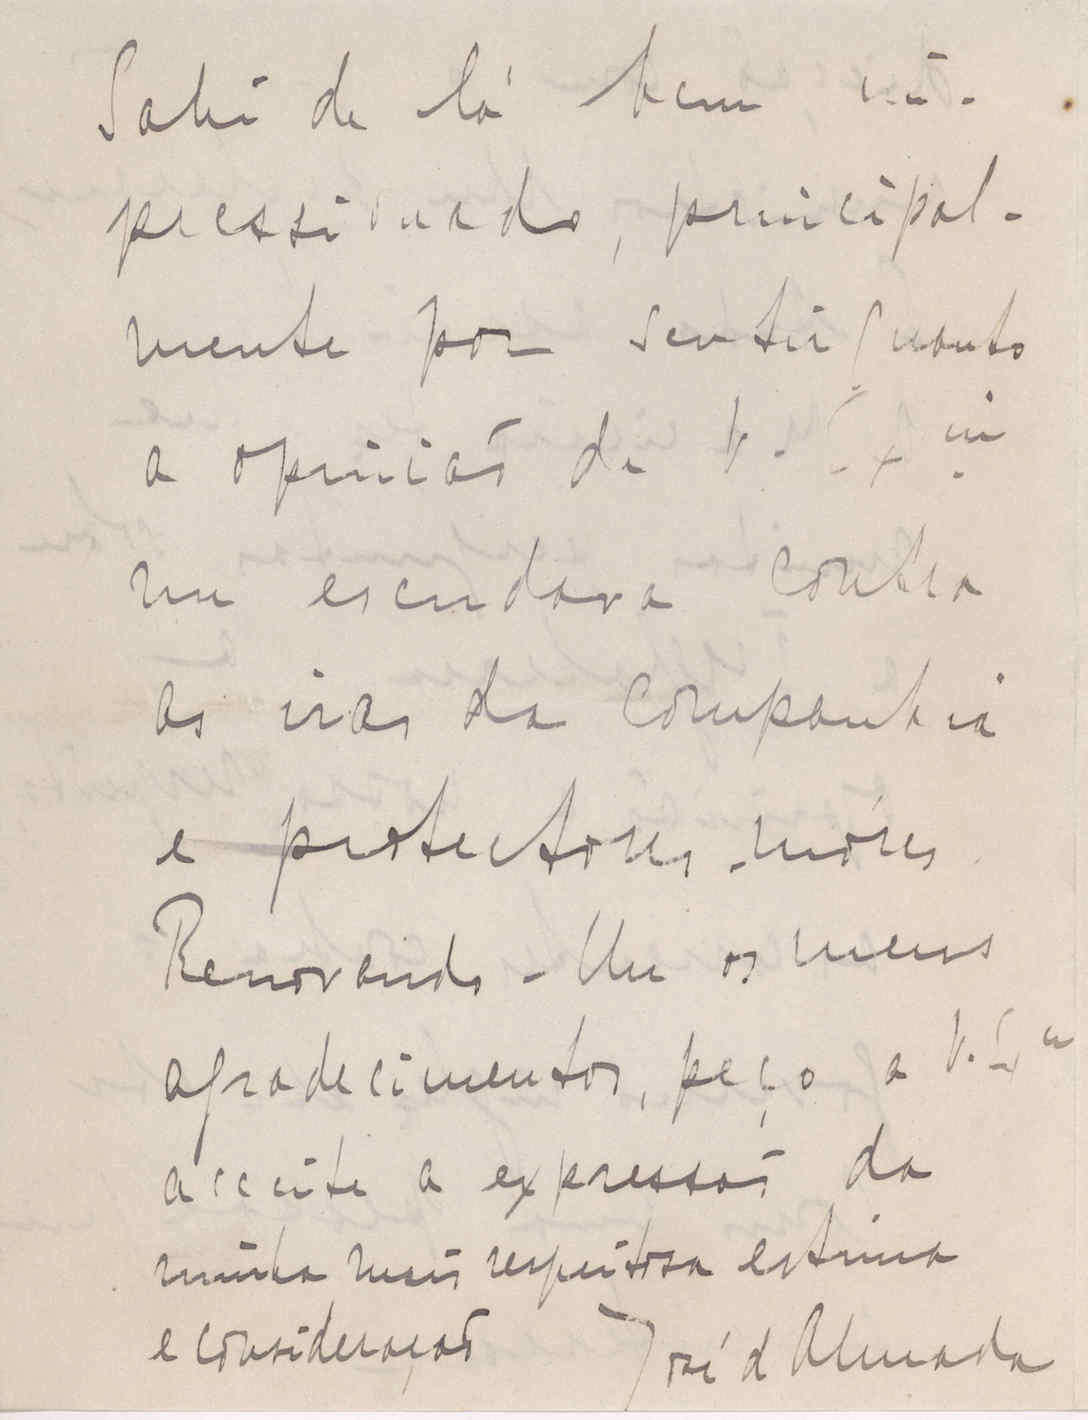 Sahi de lá bem im-
pressionado, principal-
mente por sentir quanto
a opinião de V. Ex.ª
me escudava contra
as iras da Companhia
e protectores-móres.
Renovando-lhe os meus
agradecimentos, peço a V. Exª
acceite a expressão da
minha mais respeitosa estima
e consideração José d'Almada